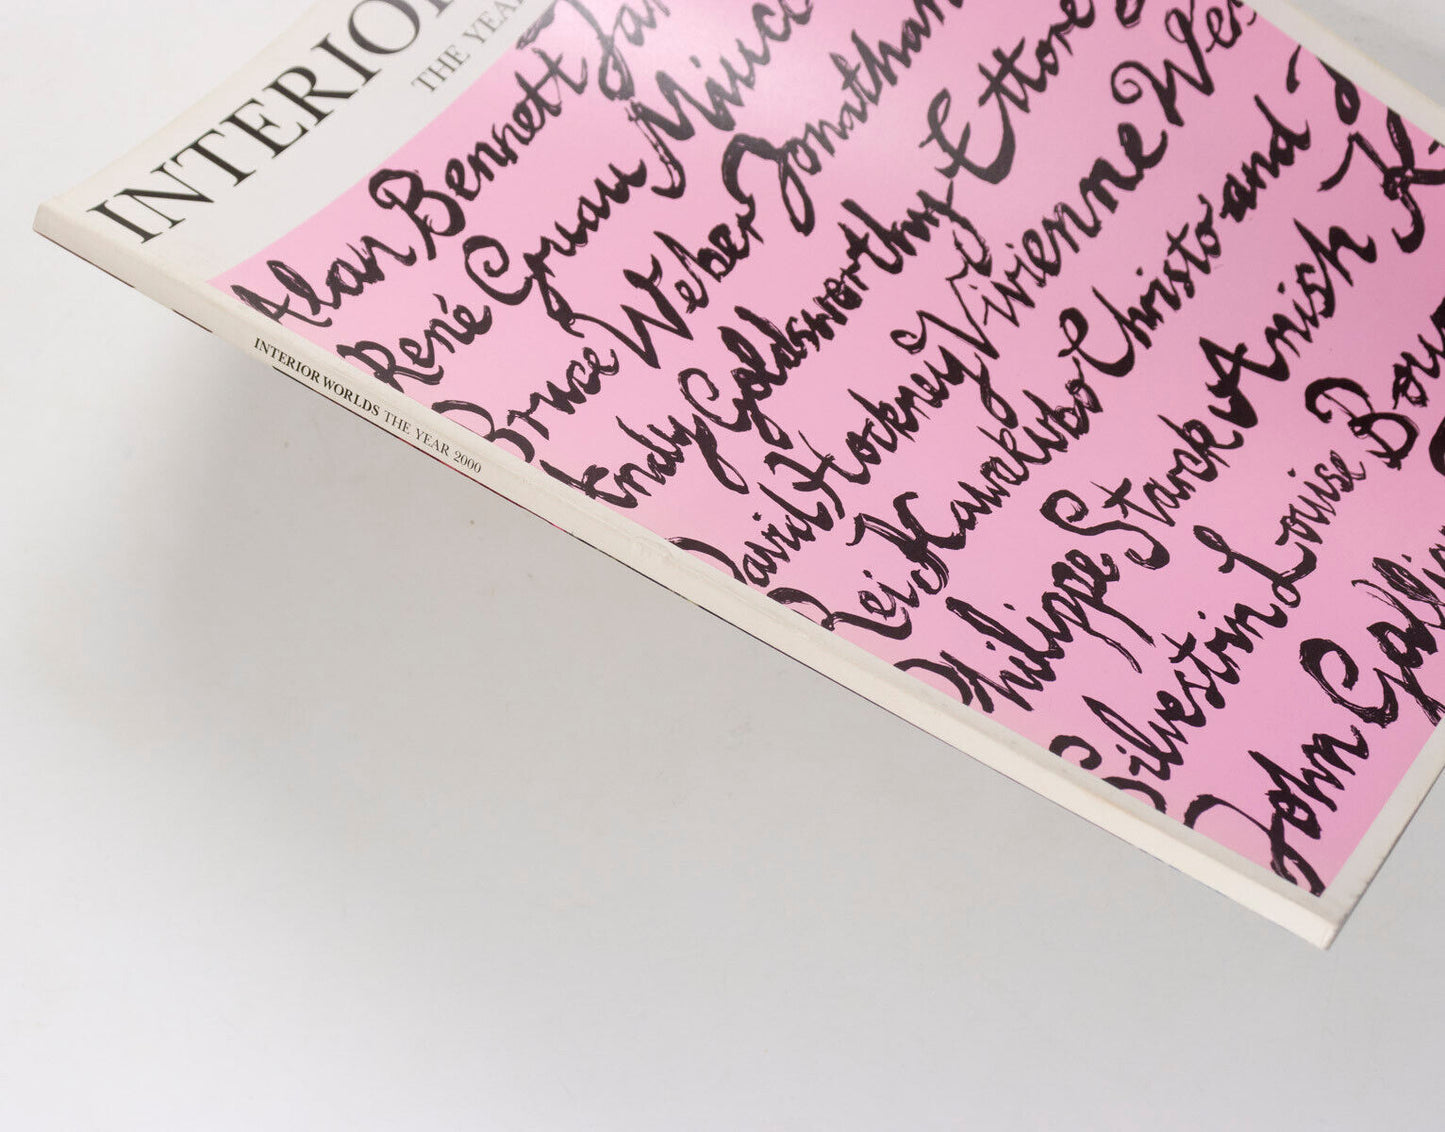 INTERIOR
THE YEAR
Alan Bennett
René Gruau
Bruce Weber Jonathan
Andy Goldsworthy Ettore
David Hockney Vivienne
Rei Kawakubo Christo and
Philippe Starck Anish
Silvestrin Louise
John
INTERIOR WORLDS THE YEAR 2000